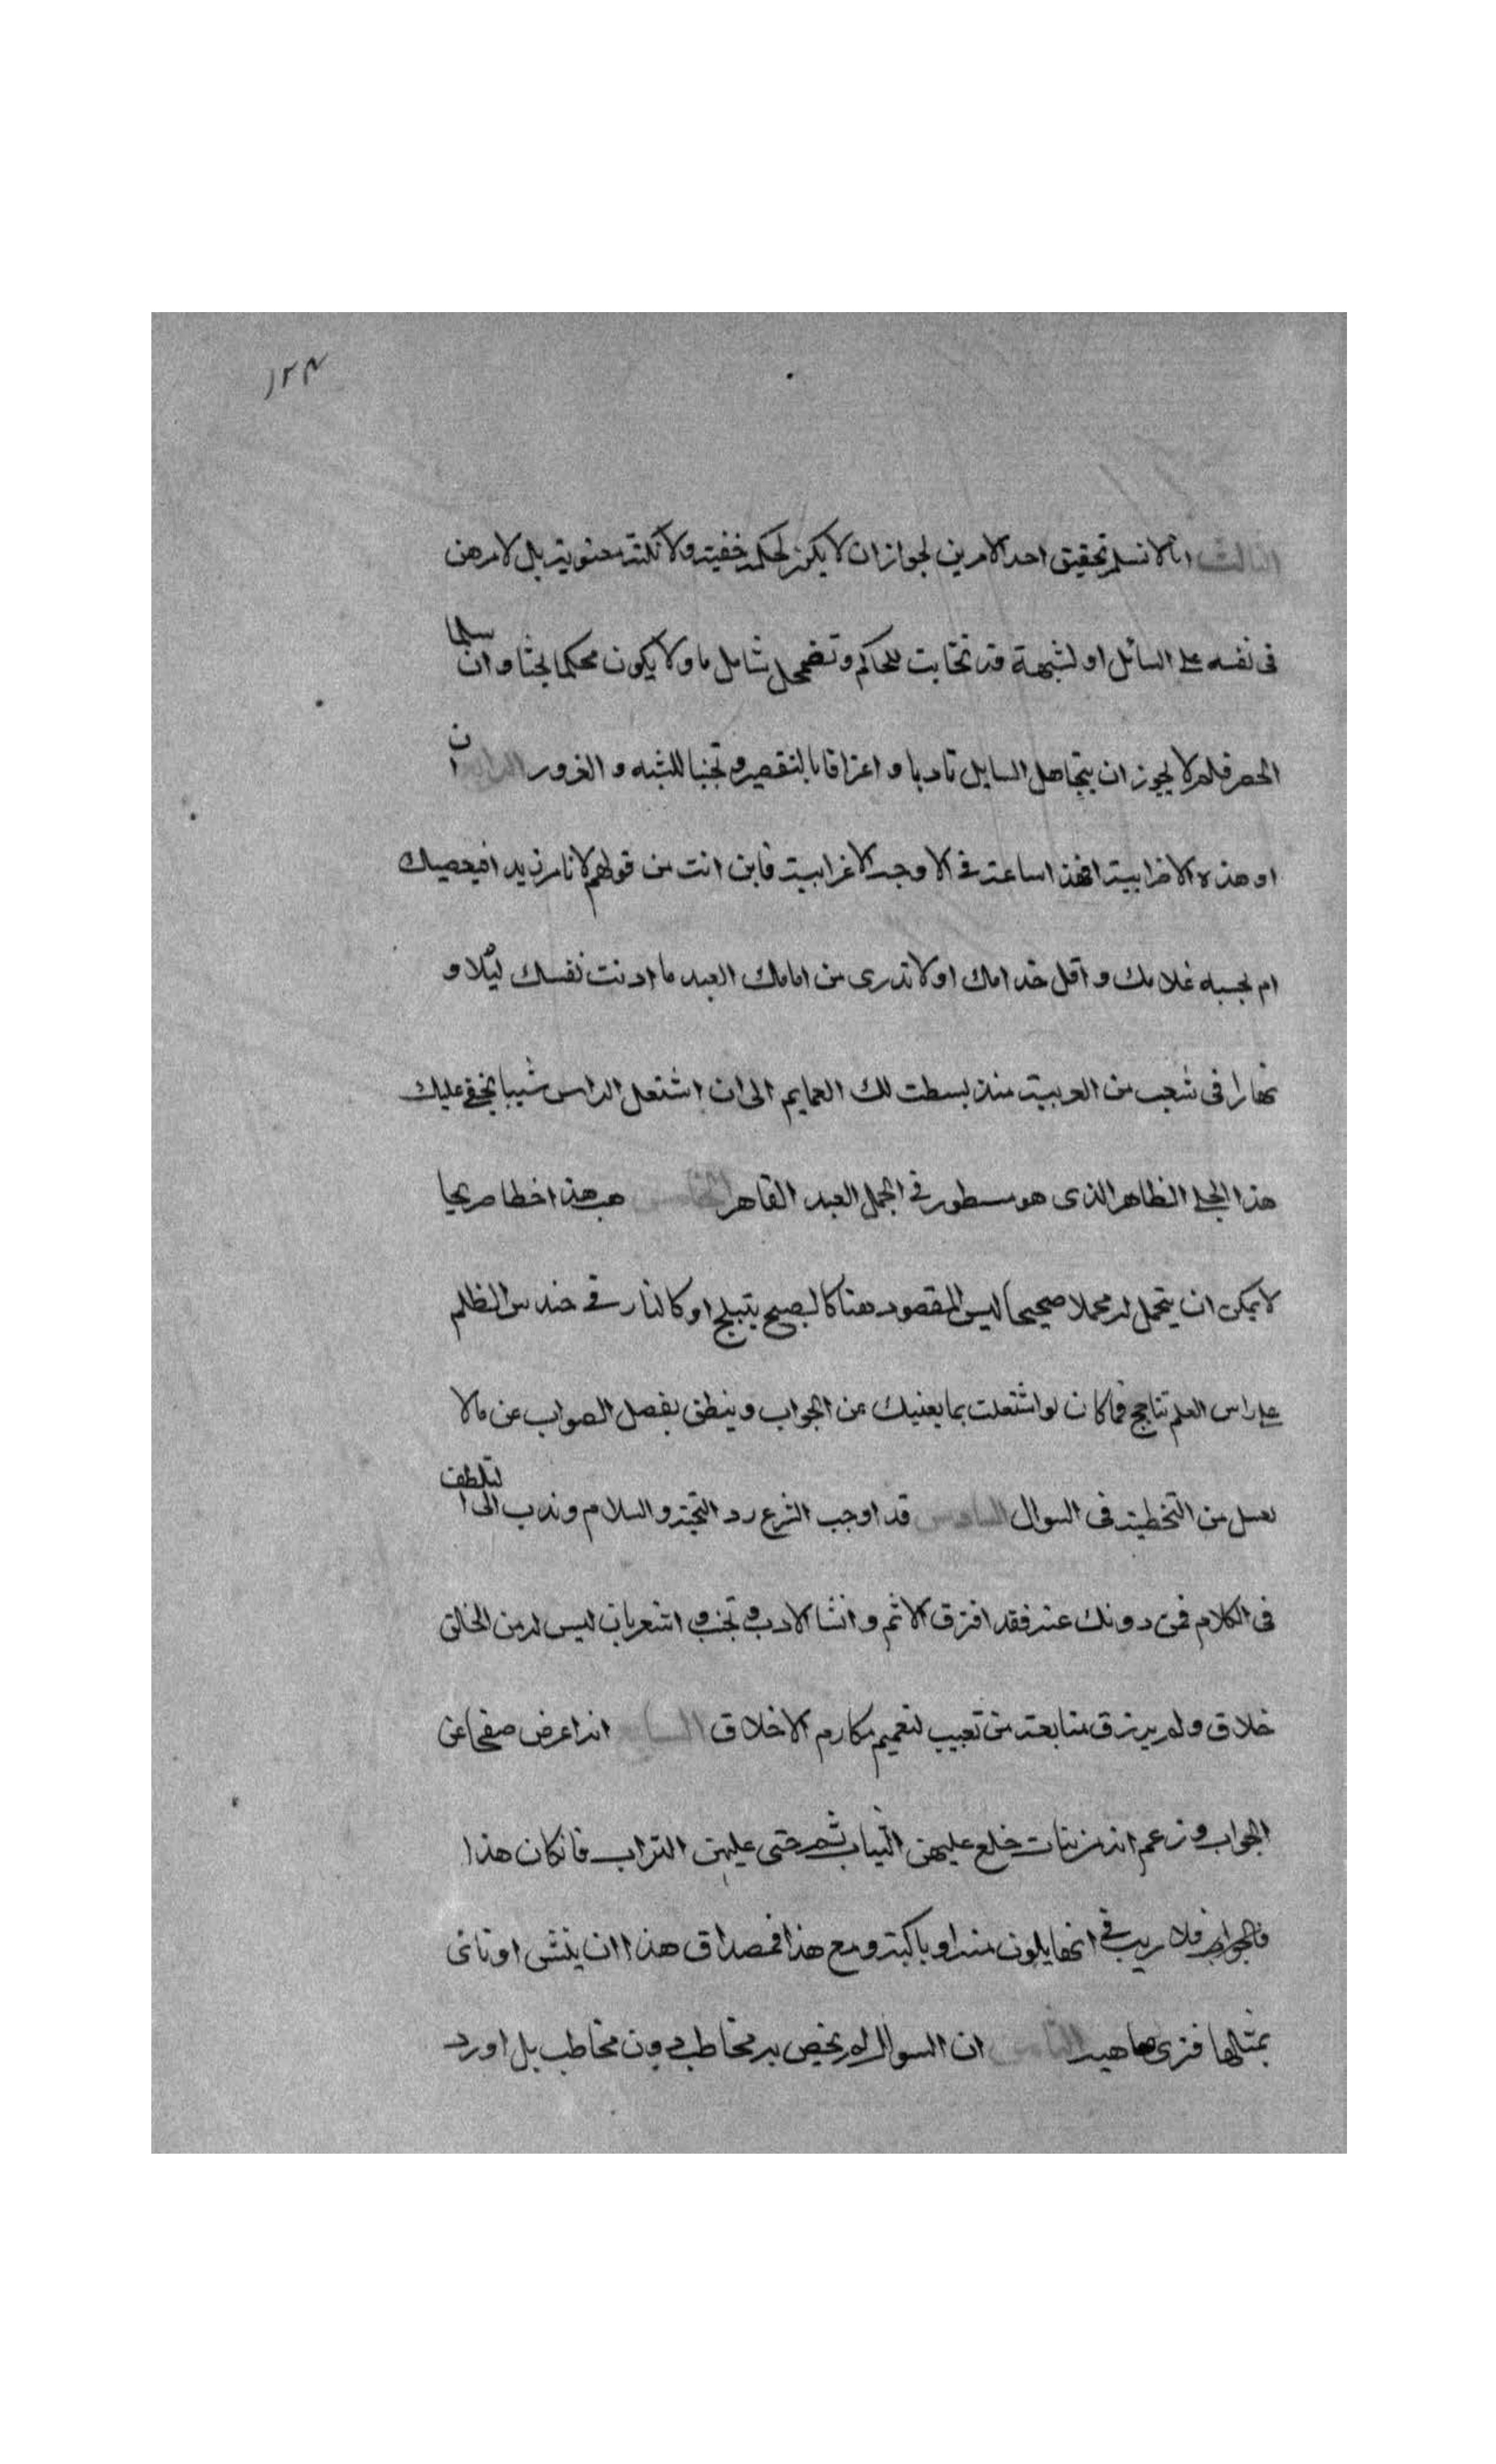 ١٢٤
الثالث انا لا نسلم تحقيق احد الامرين لجواز ان لا يكون لحكمة خفية ولا نكتة معنوية بل لامر هن
فى نفسه على السائل او لشبهة قد تخايت للحاكم وتضمحل بتامل ما ولا يكون محكما لجثا وان سلمنا
الحصر فلم لا يجوز ان يتجاهل السايل تادبا واعترافا بالتقصير وتجنبا للتيه والغرور الرابع ان
او هذه الاضرابية اتخذ اساعة فى الاوجه الاغرابية فاين انت من قولهم لا نامر زيد افيعصيك
ام يحسبه غلامك واقل خدامك او لا تدرى من امامك العبد ما ادنت نفسك ليلا و
نهارا فى شعب من العربية منذ بسطت لك العمايم الى ان اشتعل الراس شيبا يخفى عليك
هذا الجلى الظاهر الذى هو مسطور فى الجمل العبد القاهر الخامس هب هذا خطا صريحا
لا يمكن ان يتحمل له محملا صحيحا اليس المقصود هنا كالصبح يتبلج او كالنار فى حندس الظلم
على راس العلم تتاجج فما كان لو اشتعلت بما يعنيك من الجواب وينطق بفصل الصواب عن ما لا
من التخطية فى السوال السادس قد اوجب الشرع رد التحية والسلام وندب الى التلطف
فى الكلام فمن عنه فقد اقترف الاثم وانشا الادب وتجنب واشعر بان ليس له من الخالق
خلاق ولم يرزق متابعة من لتعميم مكارم الاخلاق السابع انه اعرض صفحا عن
الجواب وزعم انه من بنات خلع عليهن الثياب ثم حثى عليهن التراب فان كان هذا
فالجواب فلا ريب فى انها يلون منه او باكية ومع هذا فمصداق هذا ان ينشى او ناتى
بمثلها فنرى ماهيه الثامن ان السوال لم يخص به مخاطب دون مخاطب بل اورد